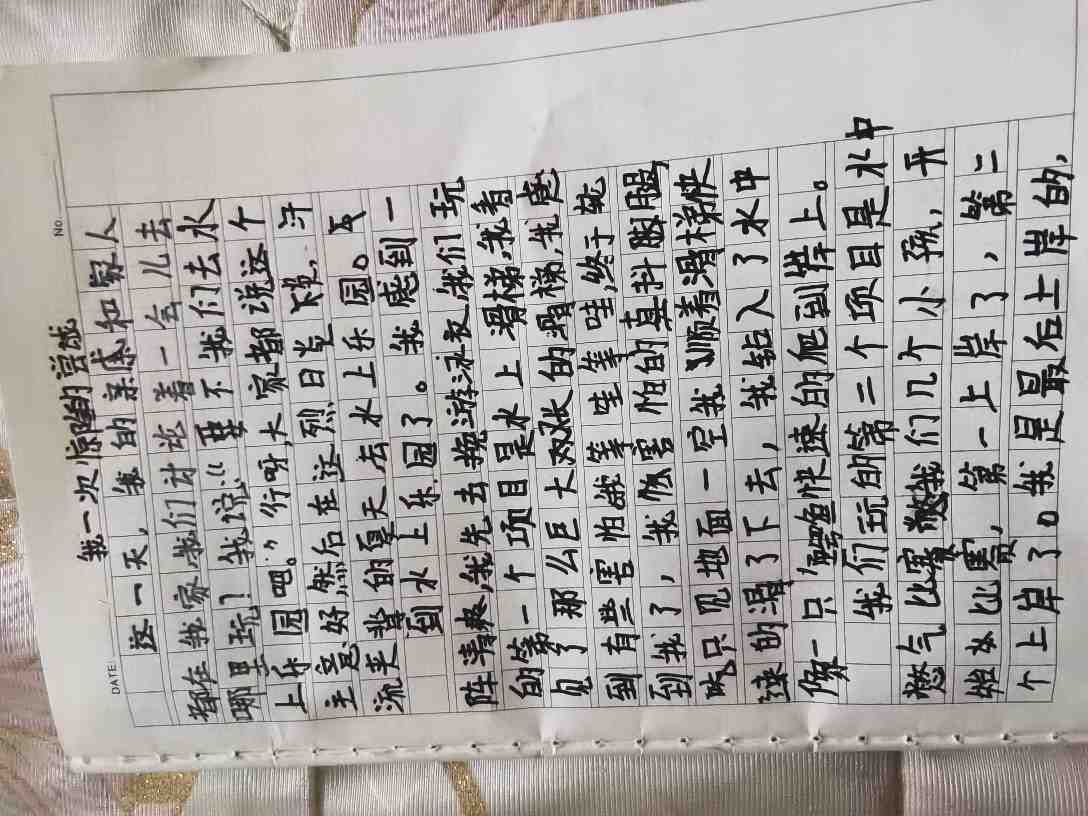 No.
DATE
我一次惊险的尝试
这一天,我的亲戚和家人
都在我家,我们讨论着一会儿去
哪里玩?我说:“要不我们去水
上乐园吧。”行呀,大家都说这个
主意好,然后在这烈日炎下,汗
流夹背的夏天去水上乐园。
到水上乐园了。我感到一
阵清爽,我先去换游泳衣,我们玩
的第一个项目是水上滑梯,我看
见了那么巨大的滑梯,我感
到有些害怕哦等哇等哇,终于轮
到我了,我怅害怕的直抖腿,
只见地面一空我顺着滑梯快
速的滑了下去,我钻入了水中
像一只鳄鱼快速的爬到岸上。
我们玩的第二个项目是水中
憋气比赛我们几个小孩,开
始比赛,第一上岸了,第二
个上岸了。我是最后上岸的,